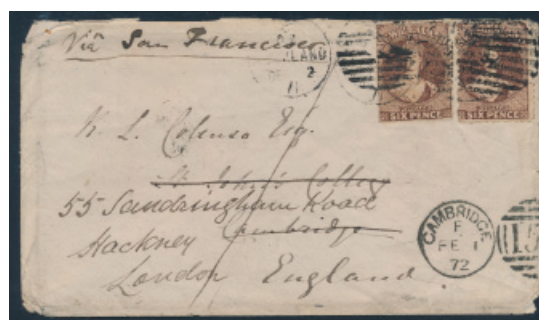 Via San Francisco
LAND
2
71
NEW ZEALAND
SIX PENCE
SIX PENCE
Colenso Esq.
St John's College
55 Sandringham Road
Hackney Cambridge
London England
CAMBRIDGE
F
FE 1
72
15